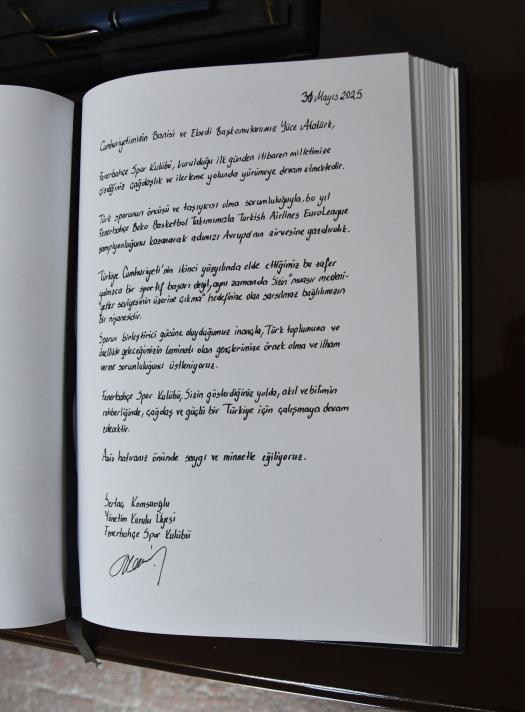 31 Mayıs 2025
Cumhuriyetimizin Banisi ve Ebedi Başkomutanımız Yüce Atatürk,
Fenerbahçe Spor Kulübü, kurulduğu ilk günden itibaren milletimize
çizdiğiniz çağdaşlık ve ilerleme yolunda yürümeye devam etmektedir.
Türk sporunun öncüsü ve taşıyıcısı olma sorumluluğuyla, bu yıl
Fenerbahçe Beko Basketbol Takımımızla Turkish Airlines EuroLeague
şampiyonluğunu kazanarak adımızı Avrupa'nın zirvesine yazdırdık.
Türkiye Cumhuriyeti'nin ikinci yüzyılında elde ettiğimiz bu zafer
yalnızca bir sportif başarı değil, aynı zamanda Sizin "muasır medeni-
yetler seviyesinin üzerine çıkma" hedefinize olan sarsılmaz bağlılığımızın
bir nişanesidir.
Sporun birleştirici gücüne duyduğumuz inançla, Türk toplumuna ve
özellikle geleceğinizin teminatı olan gençlerimize örnek olma ve ilham
verme sorumluluğunu üstleniyoruz.
Fenerbahçe Spor Kulübü, Sizin gösterdiğiniz yolda, akıl ve bilimin
rehberliğinde, çağdaş ve güçlü bir Türkiye için çalışmaya devam
edecektir.
Aziz hatıranız önünde saygı ve minnetle eğiliyoruz.
Sertaç Komsuoğlu
Yönetim Kurulu Üyesi
Fenerbahçe Spor Kulübü